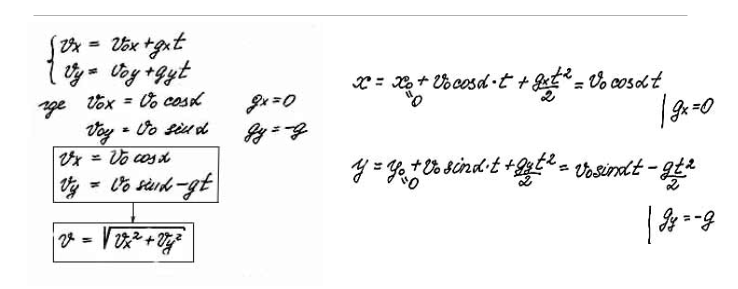 { Vx = Vox + gxt
Vy = Voy + gyt
где Vox = Vo cosα gx = 0
Voy = Vo sinα gy = -g
Vx = Vo cosα
Vy = Vo sinα - gt
V = √Vx² + Vy²
x = x₀ + Vo cosα · t + gxt²/2 = Vo cosα t
"0
| gx = 0
y = y₀ + Vo sinα · t + gyt²/2 = Vo sinα t - gt²/2
"0
| gy = -g